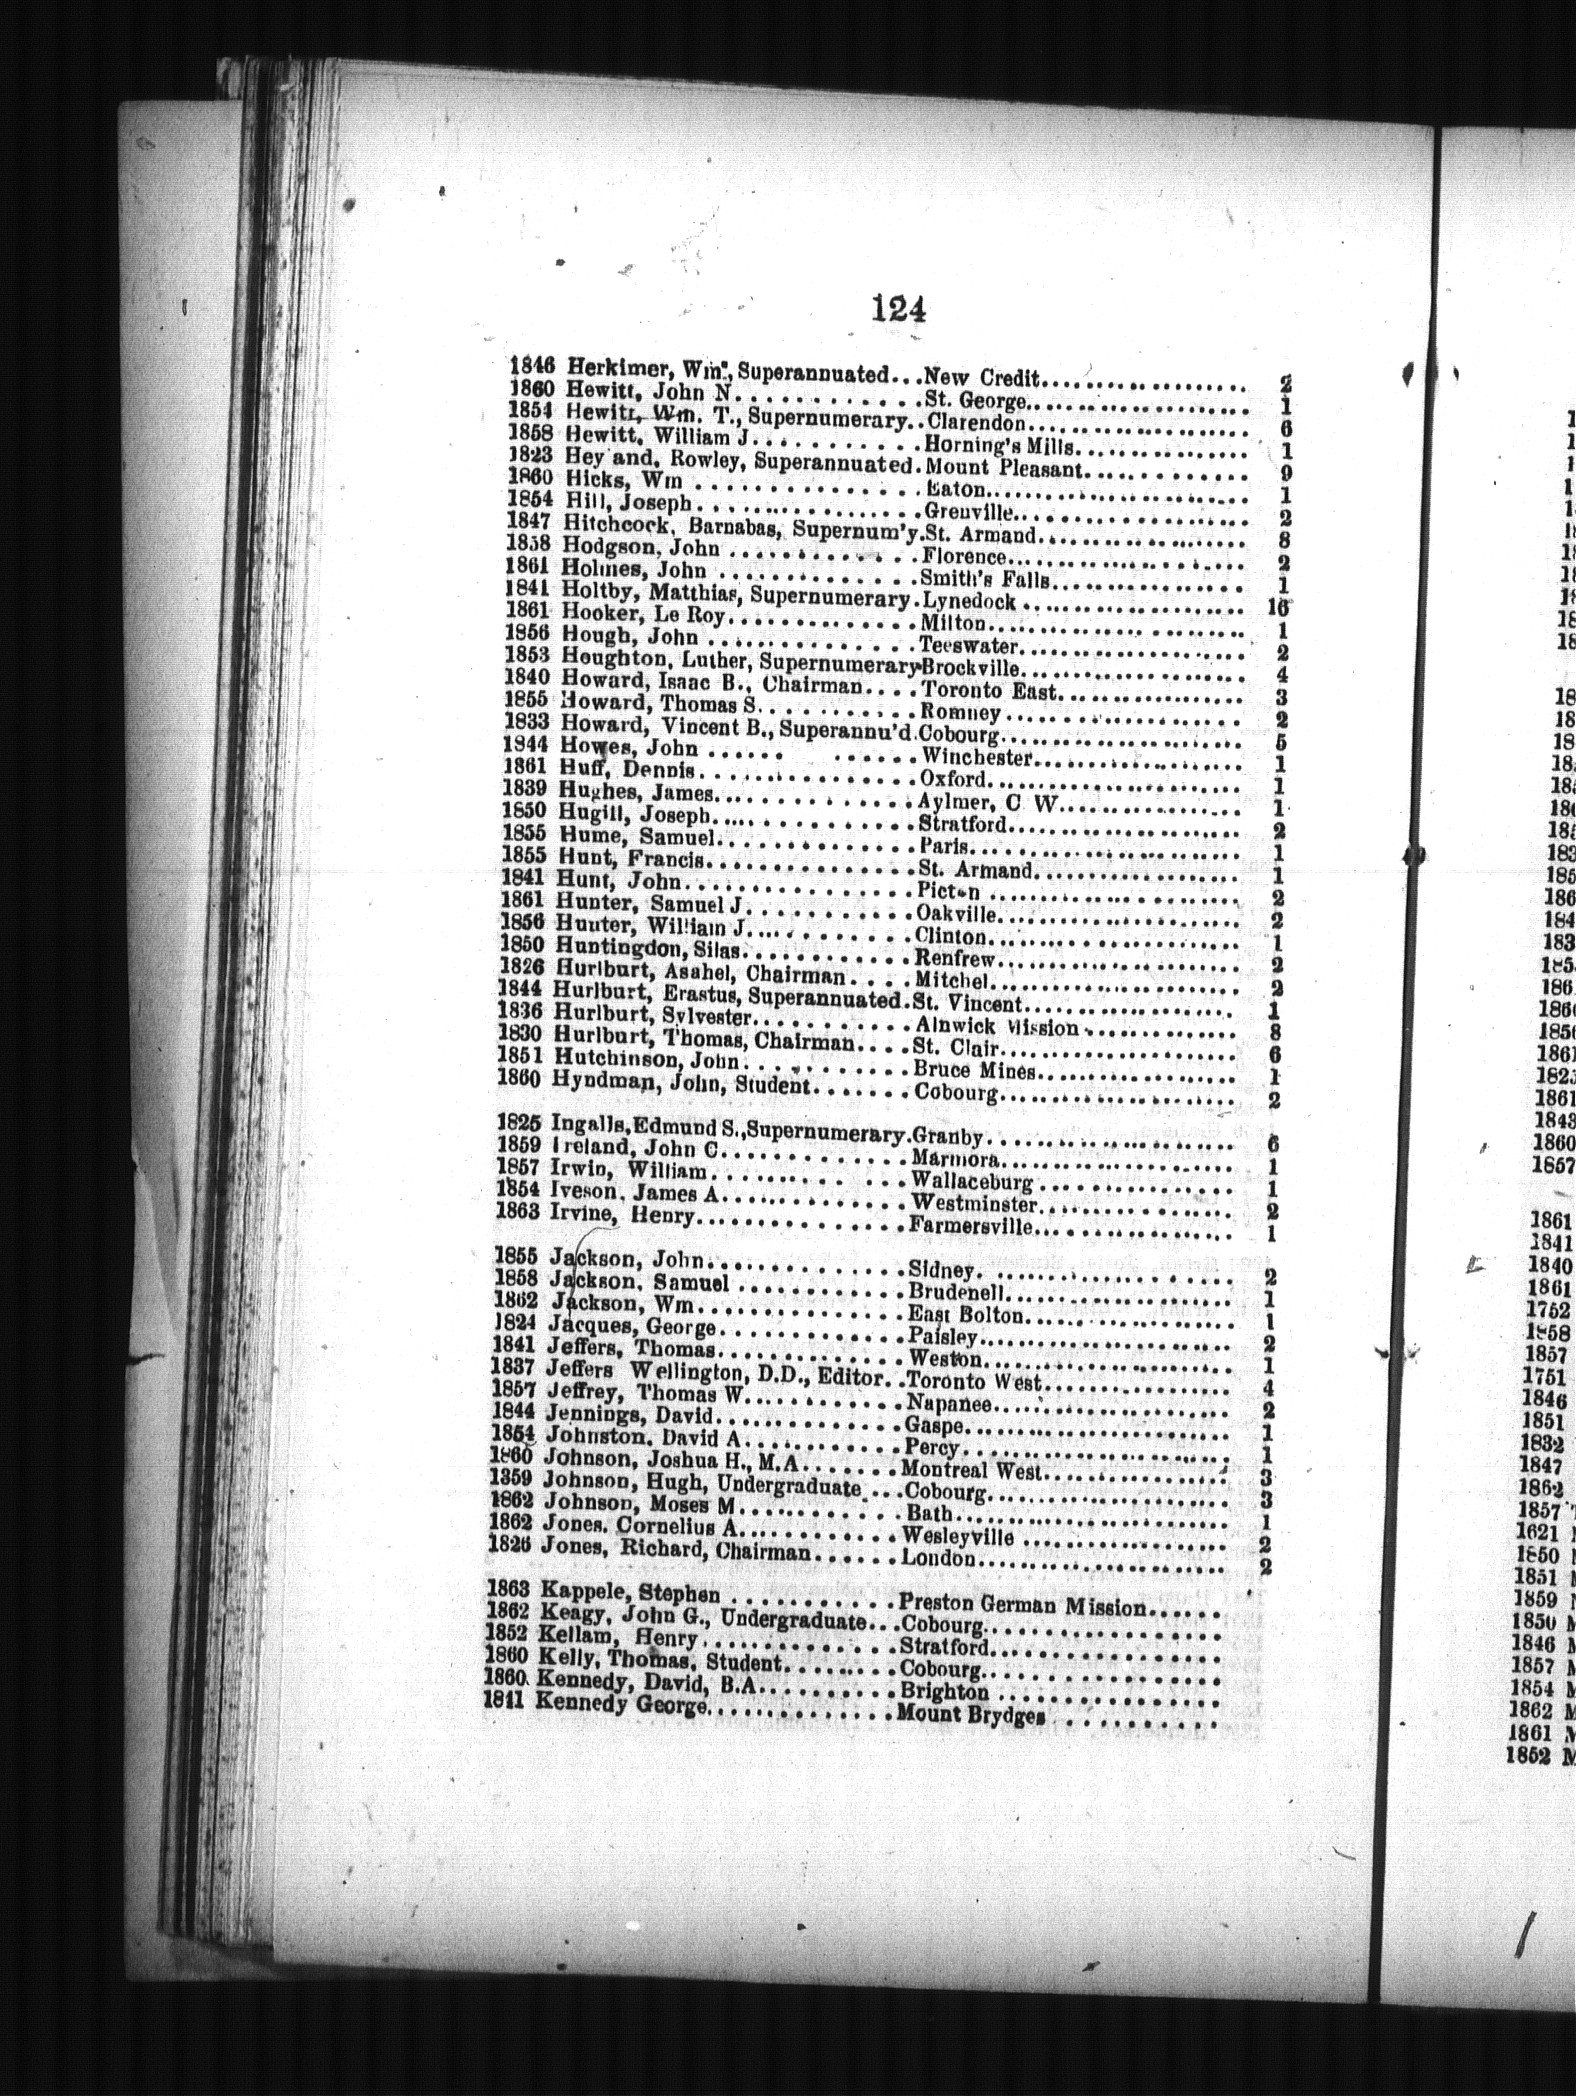 124
1846 Herkimer, Wm., Superannuated...New Credit.................. 2
1860 Hewitt, John N............St. George.................... 1
1854 Hewitt, Wm. T., Supernumerary..Clarendon.................... 6
1858 Hewitt, William J...........Horning's Mills................ 1
1823 Hey and, Rowley, Superannuated.Mount Pleasant............... 9
1860 Hicks, Wm ...............Eaton........................ 1
1854 Hill, Joseph.................Grenville..................... 2
1847 Hitchcock, Barnabas, Supernum'y.St. Armand................... 8
1858 Hodgson, John ..............Florence...................... 2
1861 Holmes, John ..............Smith's Falls................. 1
1841 Holtby, Matthias, Supernumerary.Lynedock .................... 16
1861 Hooker, Le Roy..............Milton....................... 1
1856 Hough, John ...............Teeswater..................... 2
1853 Houghton, Luther, Supernumerary.Brockville.................... 4
1840 Howard, Isaac B., Chairman....Toronto East................. 3
1855 Howard, Thomas S...........Romney ..................... 2
1833 Howard, Vincent B., Superannu'd.Cobourg...................... 5
1844 Howes, John ...... ......Winchester................... 1
1861 Huff, Dennis................Oxford....................... 1
1839 Hughes, James...............Aylmer, C W................. 1
1850 Hugill, Joseph...............Stratford..................... 2
1855 Hume, Samuel..............Paris......................... 1
1855 Hunt, Francis...............St. Armand................... 1
1841 Hunt, John.................Picton ....................... 2
1861 Hunter, Samuel J............Oakville...................... 2
1856 Hunter, William J............Clinton....................... 1
1850 Huntingdon, Silas............Renfrew...................... 2
1826 Hurlburt, Asahel, Chairman....Mitchel....................... 2
1844 Hurlburt, Erastus, Superannuated.St. Vincent................... 1
1836 Hurlburt, Sylvester...........Alnwick Mission.............. 8
1830 Hurlburt, Thomas, Chairman....St. Clair..................... 6
1851 Hutchinson, John............Bruce Mines.................. 1
1860 Hyndman, John, Student.......Cobourg..................... 2
1825 Ingalls, Edmund S., Supernumerary.Granby...................... 6
1859 Ireland, John C.............Marmora..................... 1
1857 Irwin, William.......... ...Wallaceburg ................. 1
1854 Iveson, James A..............Westminster.................. 2
1863 Irvine, Henry................Farmersville.................. 1
1855 Jackson, John...............Sidney. ..................... 2
1858 Jackson, Samuel ............Brudenell..................... 1
1862 Jackson, Wm................East Bolton................... 1
1824 Jacques, George..............Paisley....................... 2
1841 Jeffers, Thomas..............Weston....................... 1
1837 Jeffers Wellington, D.D., Editor..Toronto West................. 4
1857 Jeffrey, Thomas W............Napanee...................... 2
1844 Jennings, David..............Gaspe........................ 1
1854 Johnston, David A............Percy........................ 1
1860 Johnson, Joshua H., M.A.......Montreal West................ 3
1859 Johnson, Hugh, Undergraduate ...Cobourg...................... 3
1862 Johnson, Moses M............Bath......................... 1
1862 Jones, Cornelius A............Wesleyville .................. 2
1826 Jones, Richard, Chairman......London....................... 2
1863 Kappele, Stephen ............Preston German Mission......
1862 Keagy, John G., Undergraduate...Cobourg......................
1852 Kellam, Henry..............Stratford.....................
1860 Kelly, Thomas, Student.........Cobourg......................
1860 Kennedy, David, B.A..........Brighton ....................
1811 Kennedy George..............Mount Brydges ............
1857
1861
1841
1840
1861
1752
1858
1857
1751
1846
1851
1832
1847
1862
1857
1621
1850
1851
1859
1850
1846
1857
1854
1862
1861
1852